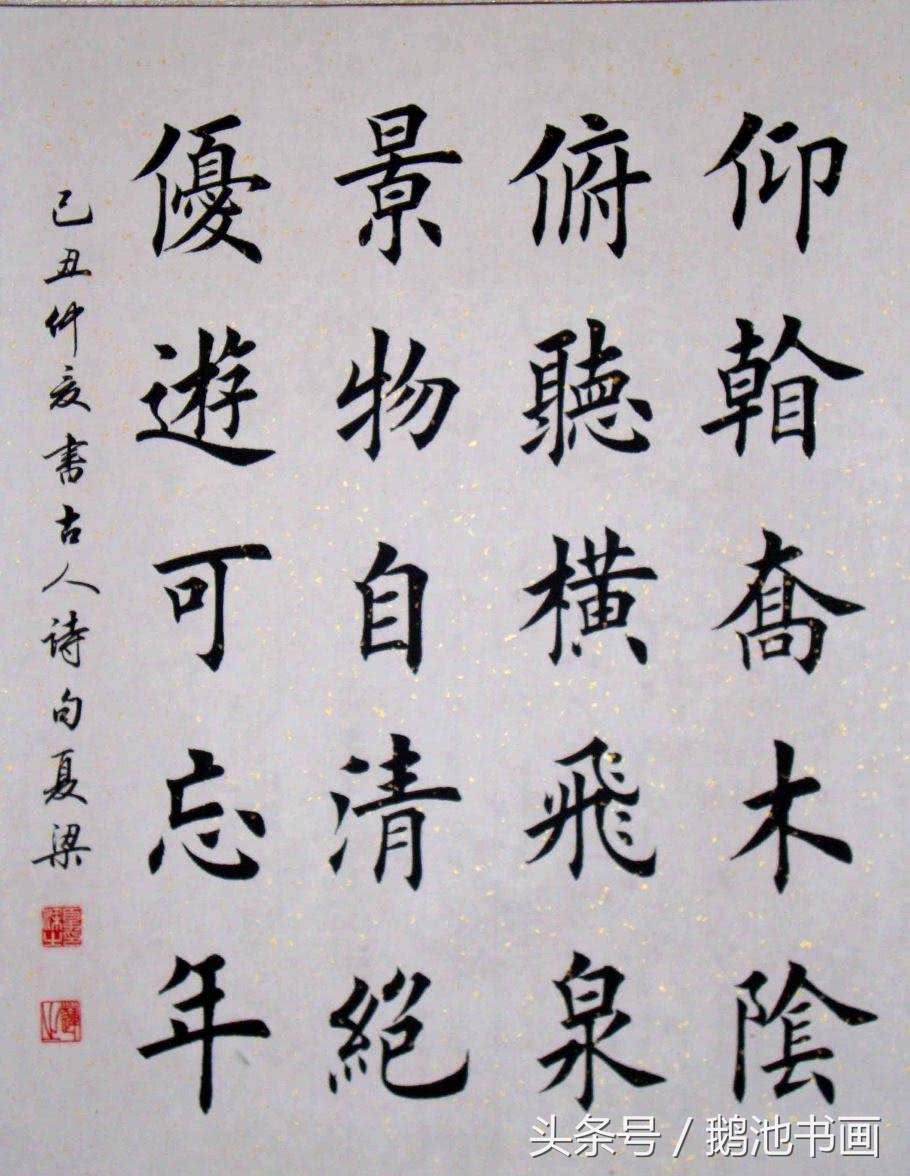 仰喬木陰
俯聽橫飛泉
景物自清絕
優遊可忘年
己丑仲夏書古人诗句夏梁
头条号 / 鹅池书画